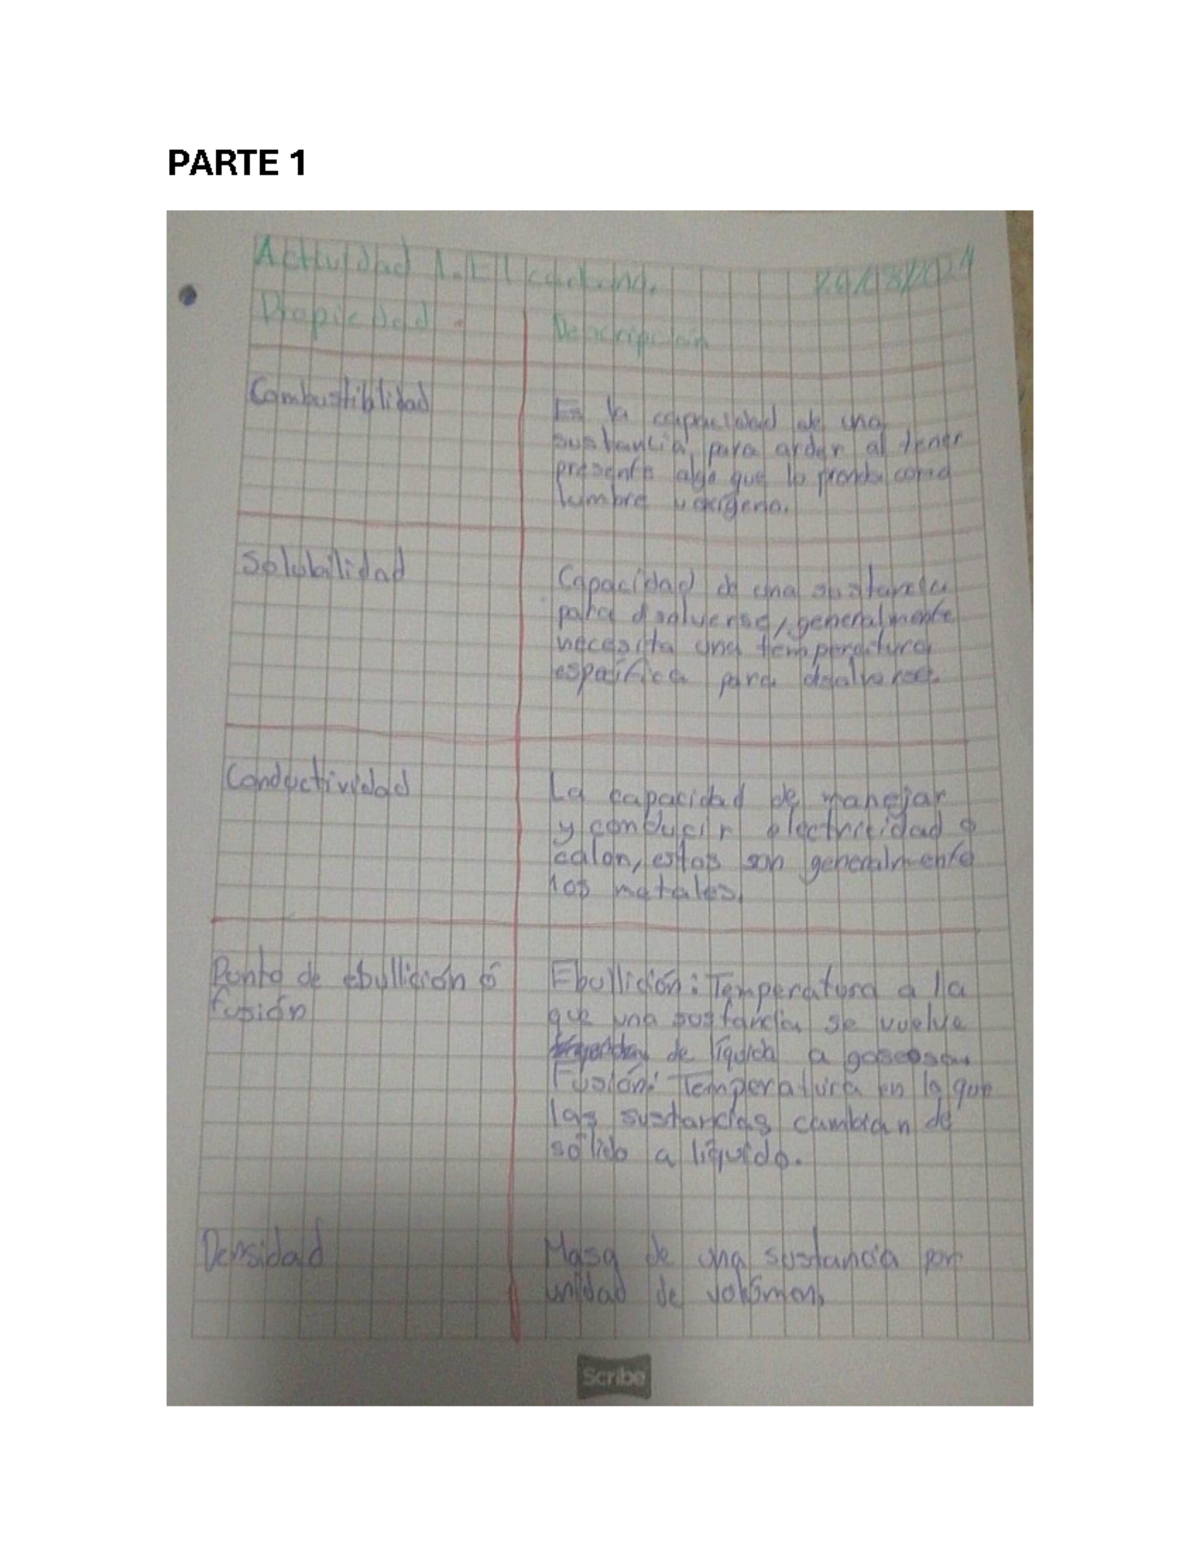 PARTE 1
Actividad 1.
Propiedad Descripción
Combustiblidad
Es la capacidad de una
sustancia para arder al tener
presente algo que lo como
lumbre u oxígeno.
Solubilidad
Capacidad de una sustancia
para disolverse, generalmente
necesita una temperatura
específica para disolverse.
Conductividad
La capacidad de manejar
y conducir electricidad o
calon, estos son generalmente
los metales.
Punto de ebullición ó
fusión
Ebullición: Temperatura a la
que una sustancia se vuelve
de líquida a gaseosa.
Fusión: Temperatura en la que
las sustancias cambian de
sólido a líquido.
Densidad
Masa de una sustancia por
unidad de volúmen.
Scribe